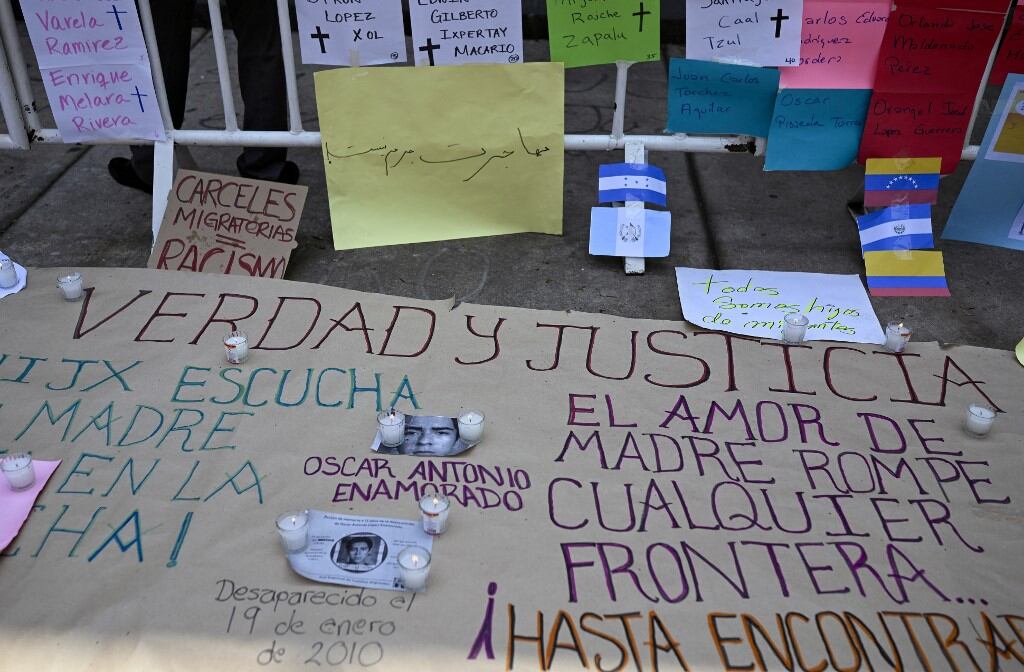 Varela
Ramirez
Enrique
Melara
Rivera
LOPEZ
XOL
GILBERTO
IXPERTAY
MACARIO
20
Zapalu
35
Caal
Tzul
40
Juan Carlos
Aguilar
Oscar
Orlando José
Maldonado
Pérez
Orangel José
Lopez Guerrero
مهاجرت جرم نیست!
CARCELES
MIGRATORIAS
=
RACISMO
todos
Somos hijos
de migrantes
VERDAD Y JUSTICIA
IJX ESCUCHA
MADRE
EN LA
CHA!
OSCAR ANTONIO
ENAMORADO
Desaparecido el
19 de enero
de 2010
EL AMOR DE
MADRE ROMPE
CUALQUIER
FRONTERA...
¡HASTA ENCONTRAR